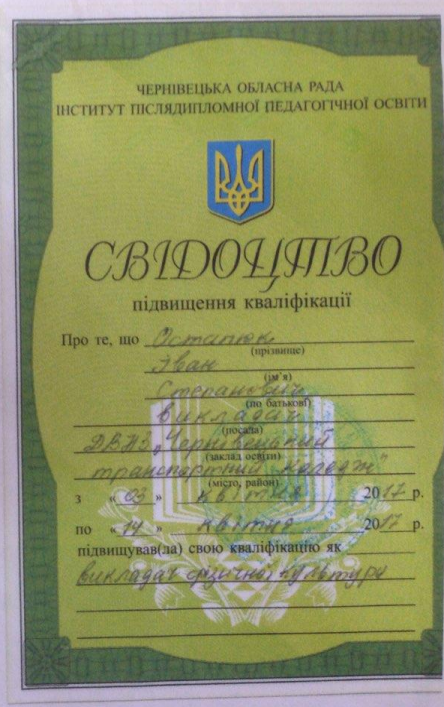 ЧЕРНІВЕЦЬКА ОБЛАСНА РАДА
ІНСТИТУТ ПІСЛЯДИПЛОМНОЇ ПЕДАГОГІЧНОЇ ОСВІТИ
СВІДОЦТВО
підвищення кваліфікації
Про те, що Остапюк
(прізвище)
Іван
(ім'я)
Степанович
(по батькові)
викладач
(посада)
ДВНЗ „Чернівецький
(заклад освіти)
транспортний коледж"
(місто, район)
з « 03 » квітня 2017 р.
по « 14 » квітня 2017 р.
підвищував(ла) свою кваліфікацію як
викладач фізичної культури